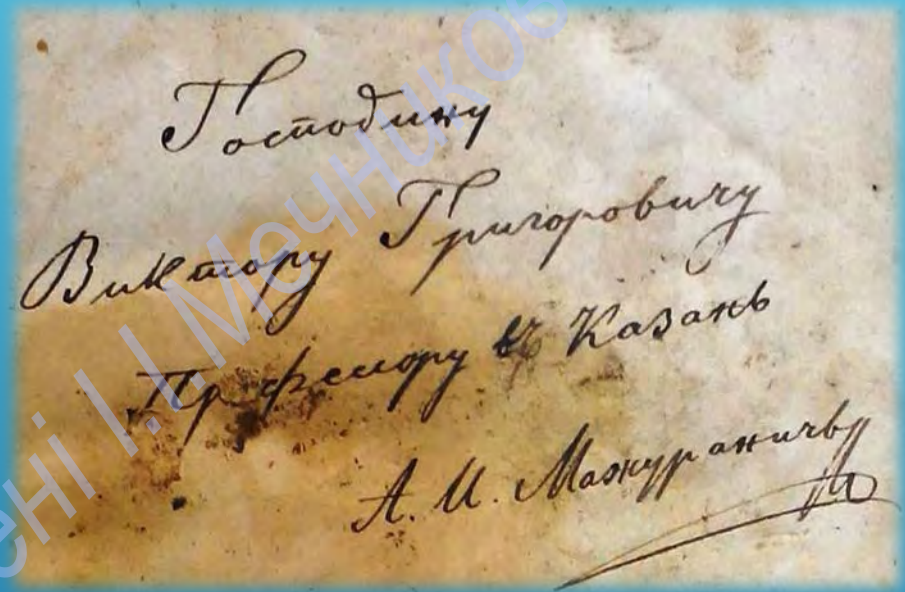 Господину
Виктору Григоровичу
Профессору въ Казань
А. И. Мажураничь
ені І.І.Мечников